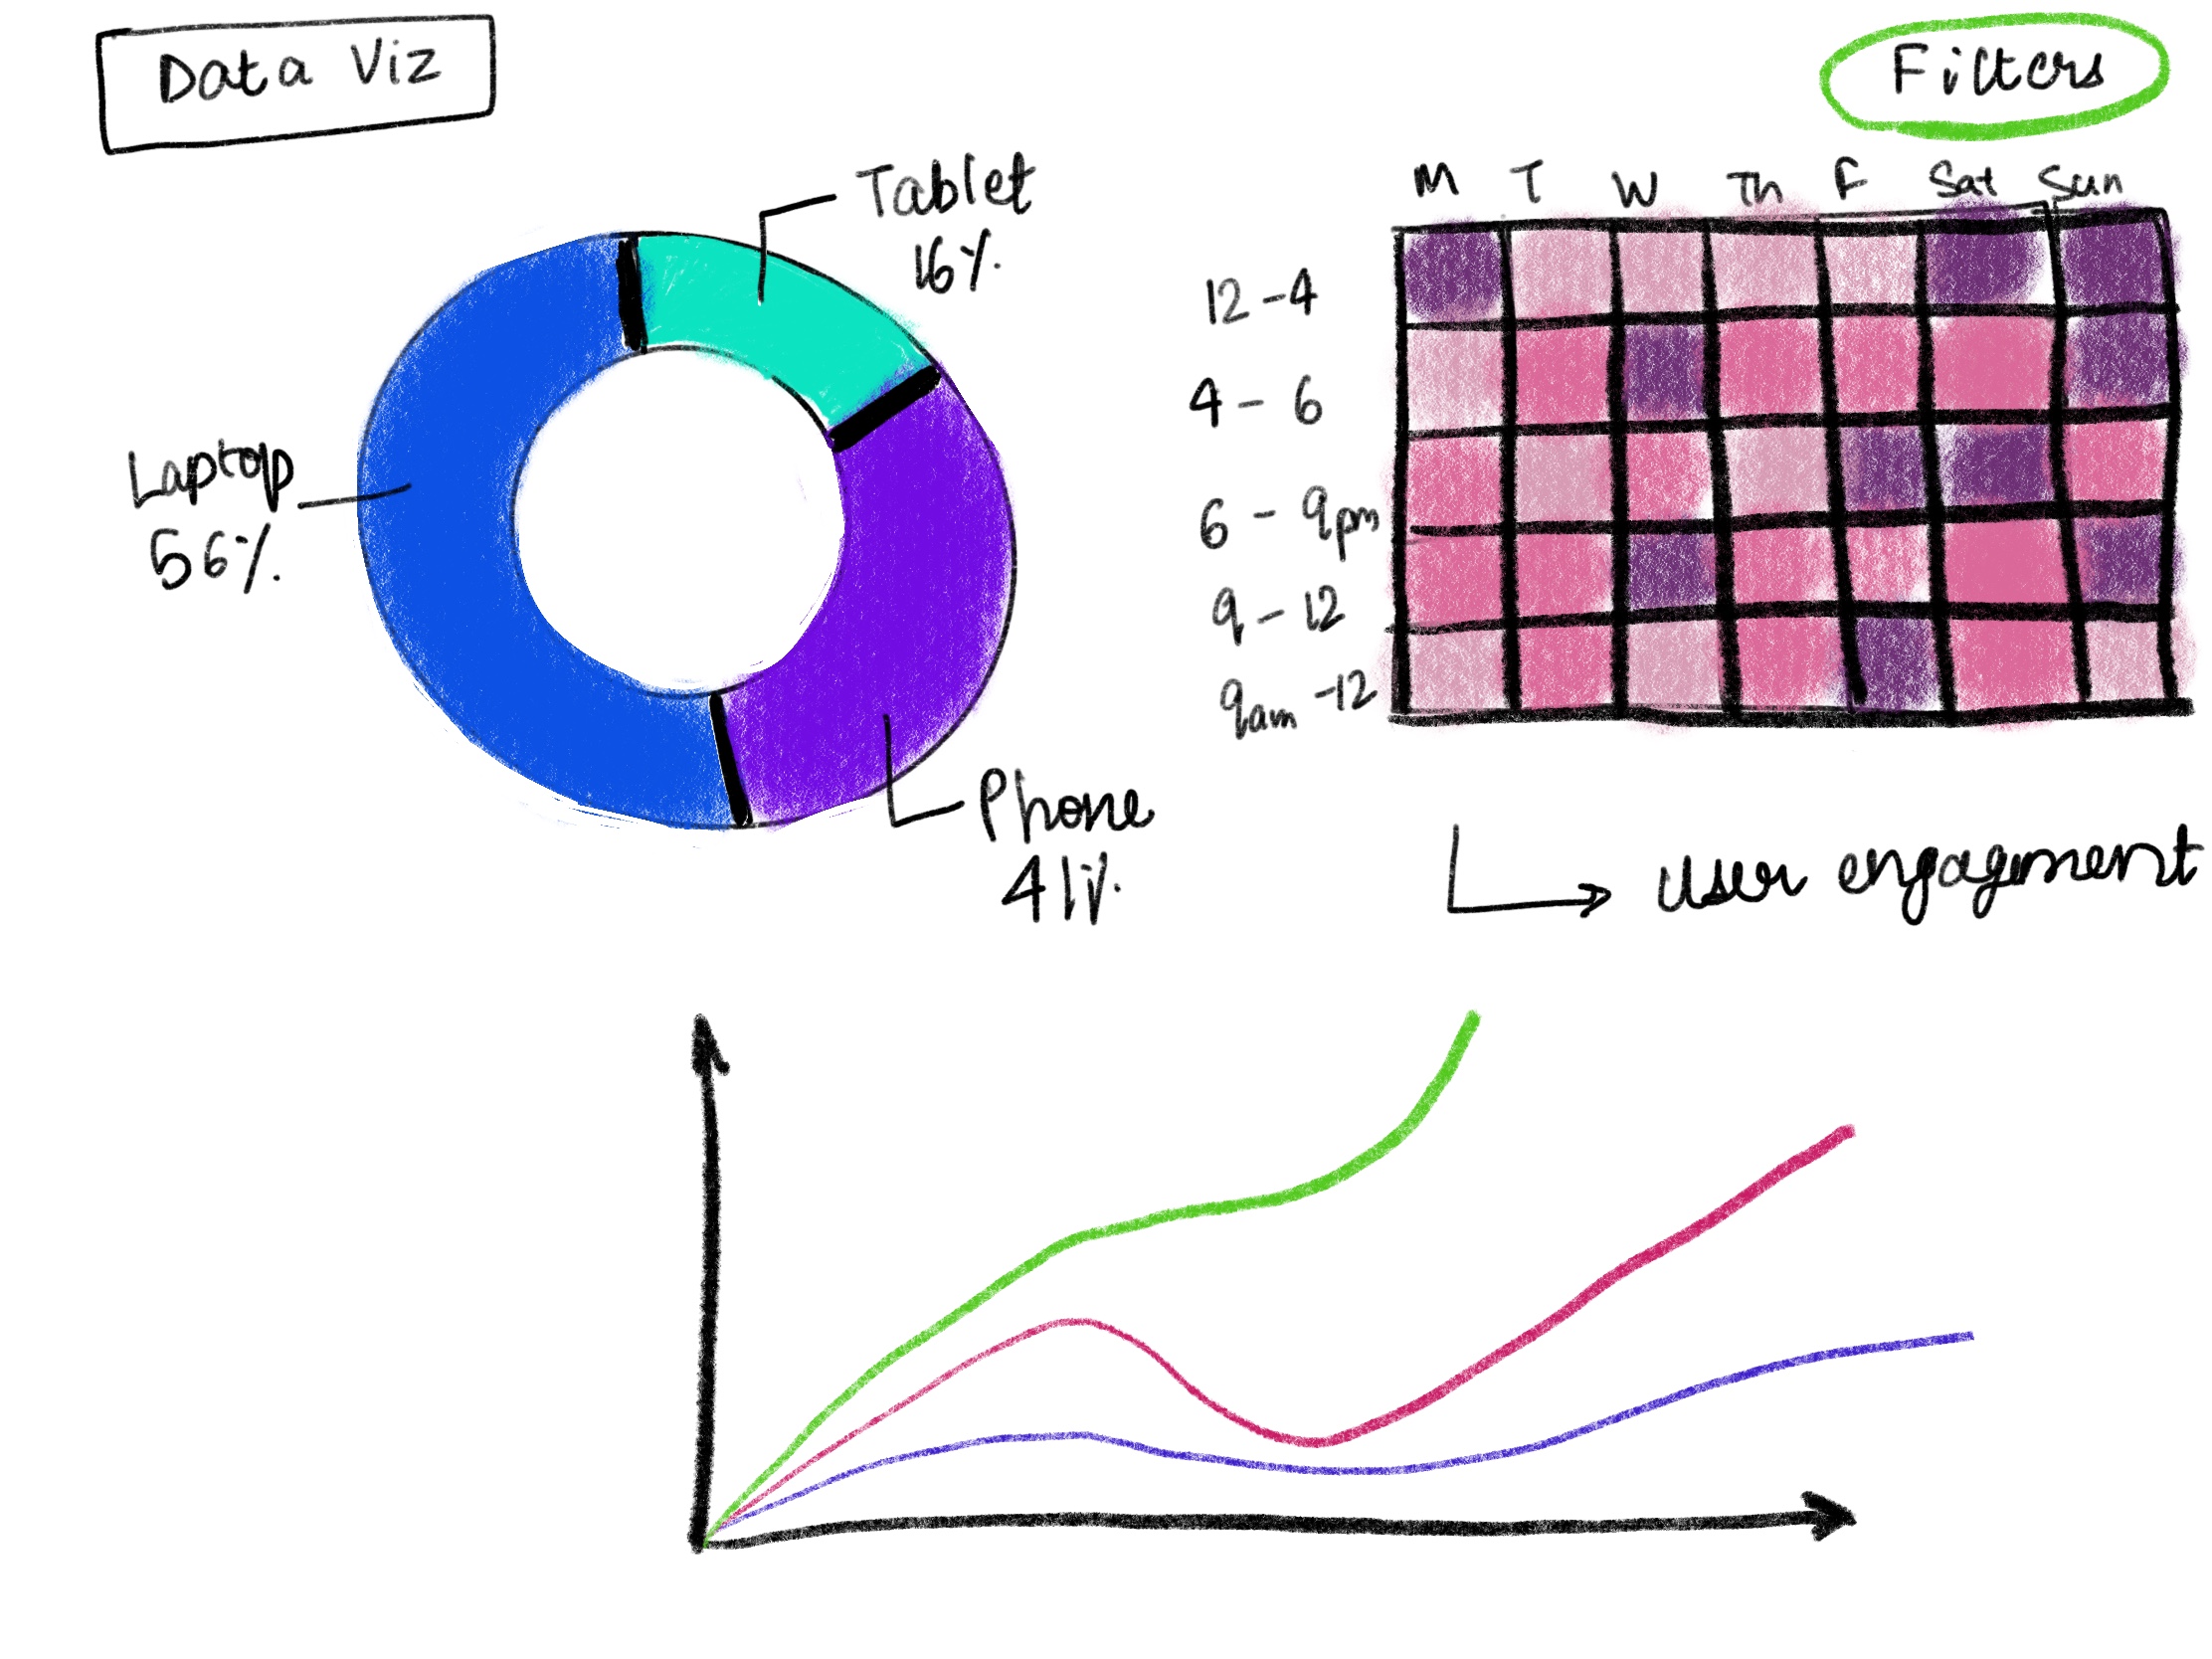 Data Viz
Filters
Tablet
16%
Laptop
56%
Phone
41%
M T W Th F Sat Sun
12-4
4-6
6-9pm
9-12
9am-12
User engagement